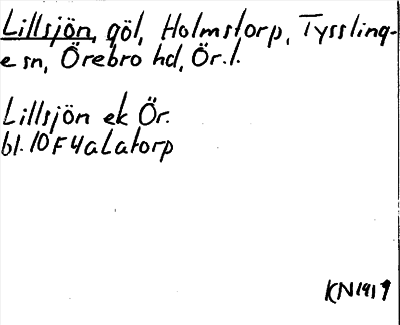 Lillsjön, göl, Holmstorp, Tyssling-
e sn, Örebro hd, Ör. l.
Lillsjön ek Ör.
bl. 10F4a Latorp
KN1919